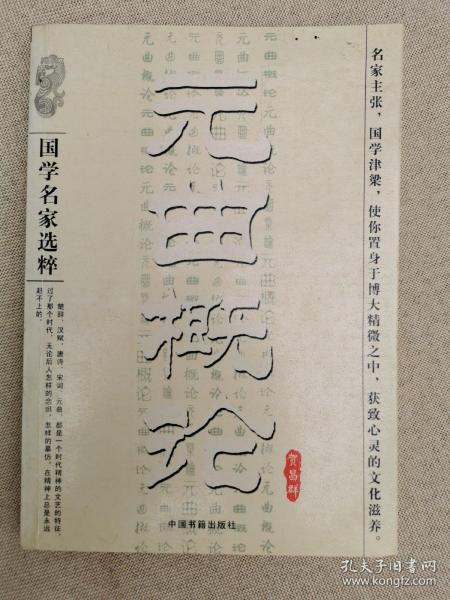 名家主张，国学津梁，使你置身于博大精微之中，获致心灵的文化滋养。
元曲概论
贺昌群
中国书籍出版社
国学名家选粹
楚辞、汉赋、唐诗、宋词、元曲，都是一个时代精神的文艺的特征，
过了那个时代，无论后人怎样的念旧，怎样的摹仿，在精神上总是永远
赶不上的。
孔夫子旧书网
www.kongfz.com